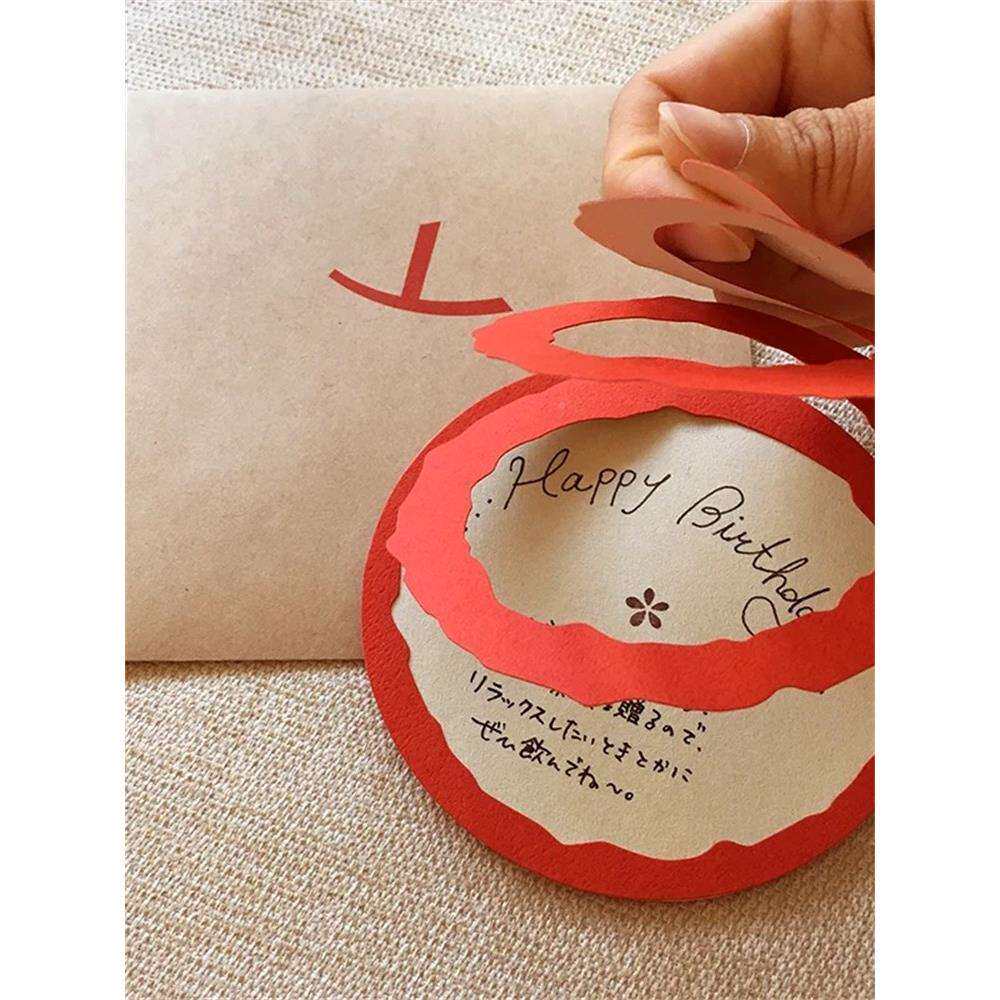 Happy Birthda
贈るので、
リラックスしたいときとかに
ぜひ飲んでね〜。